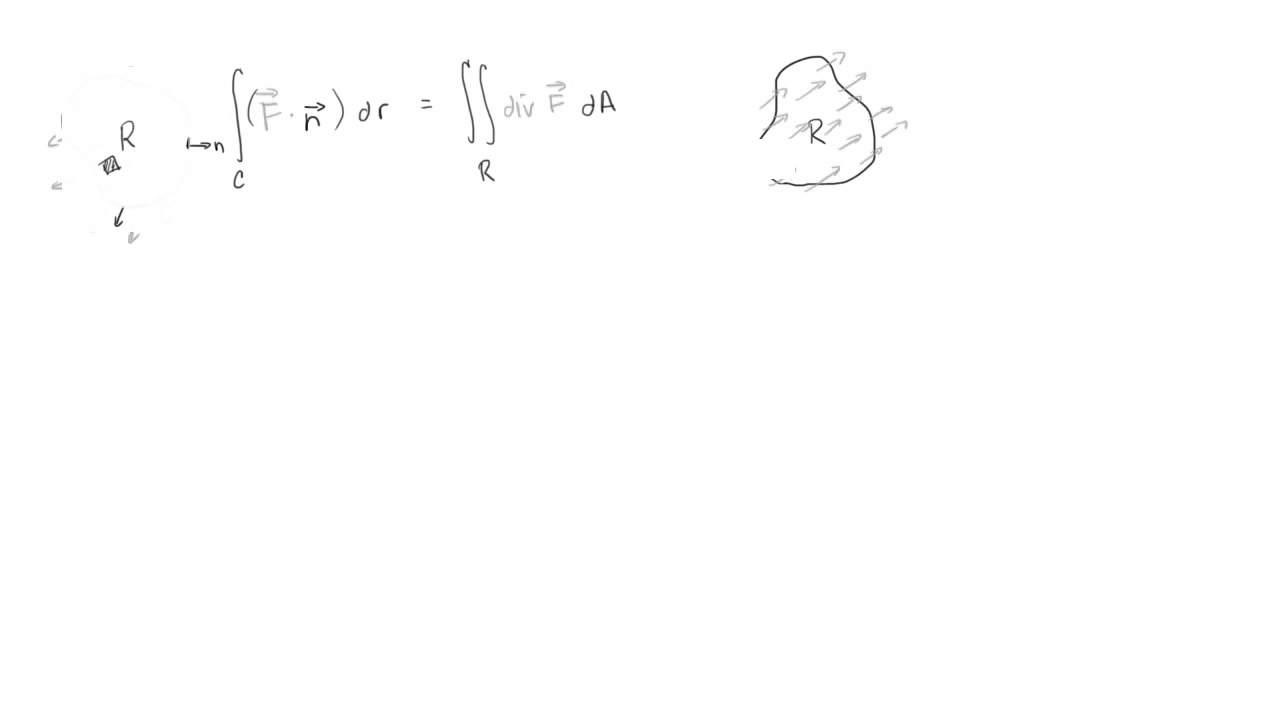 R n ∫_C (F⃗ · n⃗) dr = ∬_R div F⃗ dA R